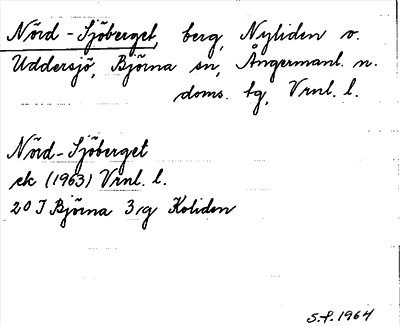 Nörd-Sjöberget, berg, Nyliden v.
Uddersjö, Björna sn, Ångermanl. n.
doms. tg, Vrnl. l.
Nörd-Sjöberget
ek (1963) Vrnl. l.
20 I Björna 3,g Koliden
S.F. 1964